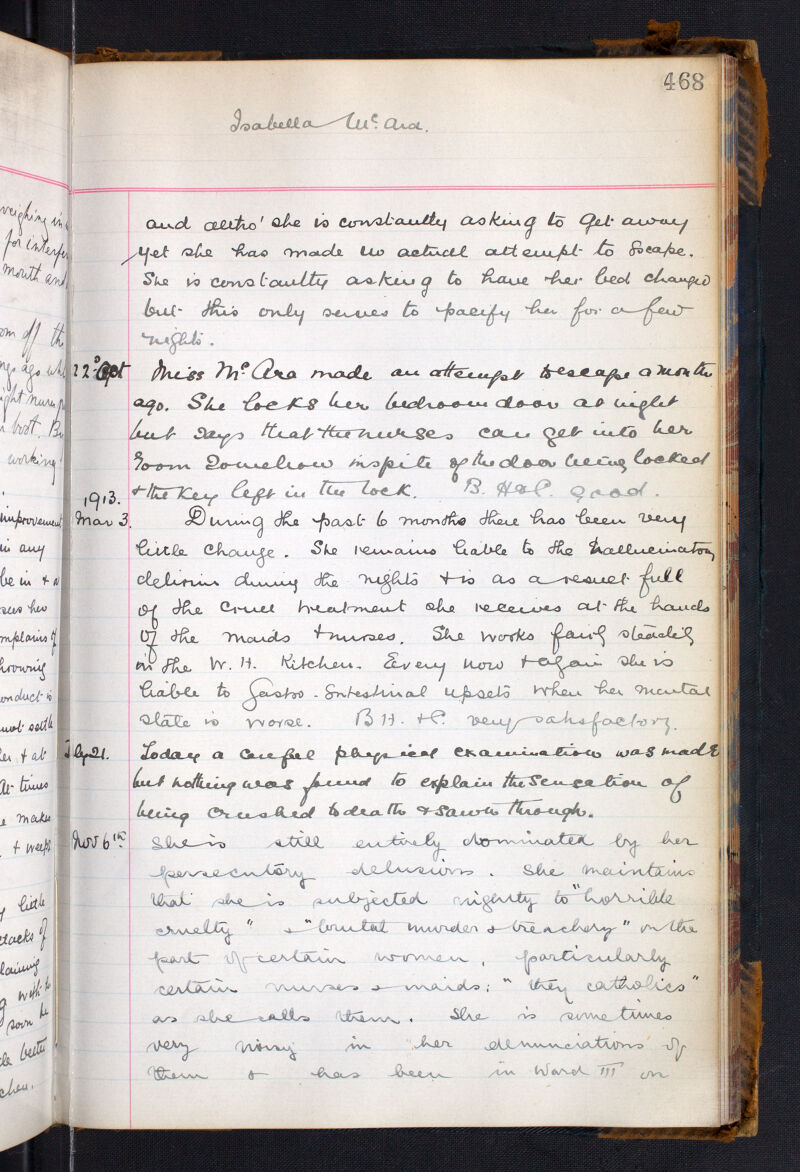 468
Isabella McAra.
and altho' she is constantly asking to get away
yet she has made no actual attempt to escape.
She is constantly asking to have her bed changed
but this only serves to pacify her for a few
nights.
22d Sept Miss McAra made an attempt to escape a month
ago. She locks her bedroom door at night
but says that the nurses can get into her
room somehow inspite of the door being locked
& the key left in the lock. B. H & P. good.
1913.
Mar 3. During the past 6 months there has been very
little change. She remains liable to the hallucinatory
delirium during the nights & is as a result full
of the cruel treatment she receives at the hands
of the maids & nurses. She works fairly steadily
in the W. H. Kitchen. Every now & again she is
liable to Gastro-Intestinal upsets when her mental
state is worse. B H. & P. very satisfactory.
July 21. Today a careful physical examination was made
but nothing was found to explain the sensation of
being crushed to death & sawn through.
Nov 6th She is still entirely dominated by her
persecutory delusions. She maintains
that she is subjected nightly to "horrible
cruelty" & "brutal murder & treachery" on the
part of certain women, particularly
certain nurses & maids; "they catholics"
as she calls them. She is sometimes
very noisy in her denunciations of
them & has been in Ward III on
weighing in
for interfe
month and
off th
ago wh
ight nurse
boot. Bu
working
improvement
in any
be in & a
sees her
mplains of
hrowing
onduct is
not settle
her & at
At times
makes
& weeps
little
ttacks of
laining
with
soon be
le better
chen.